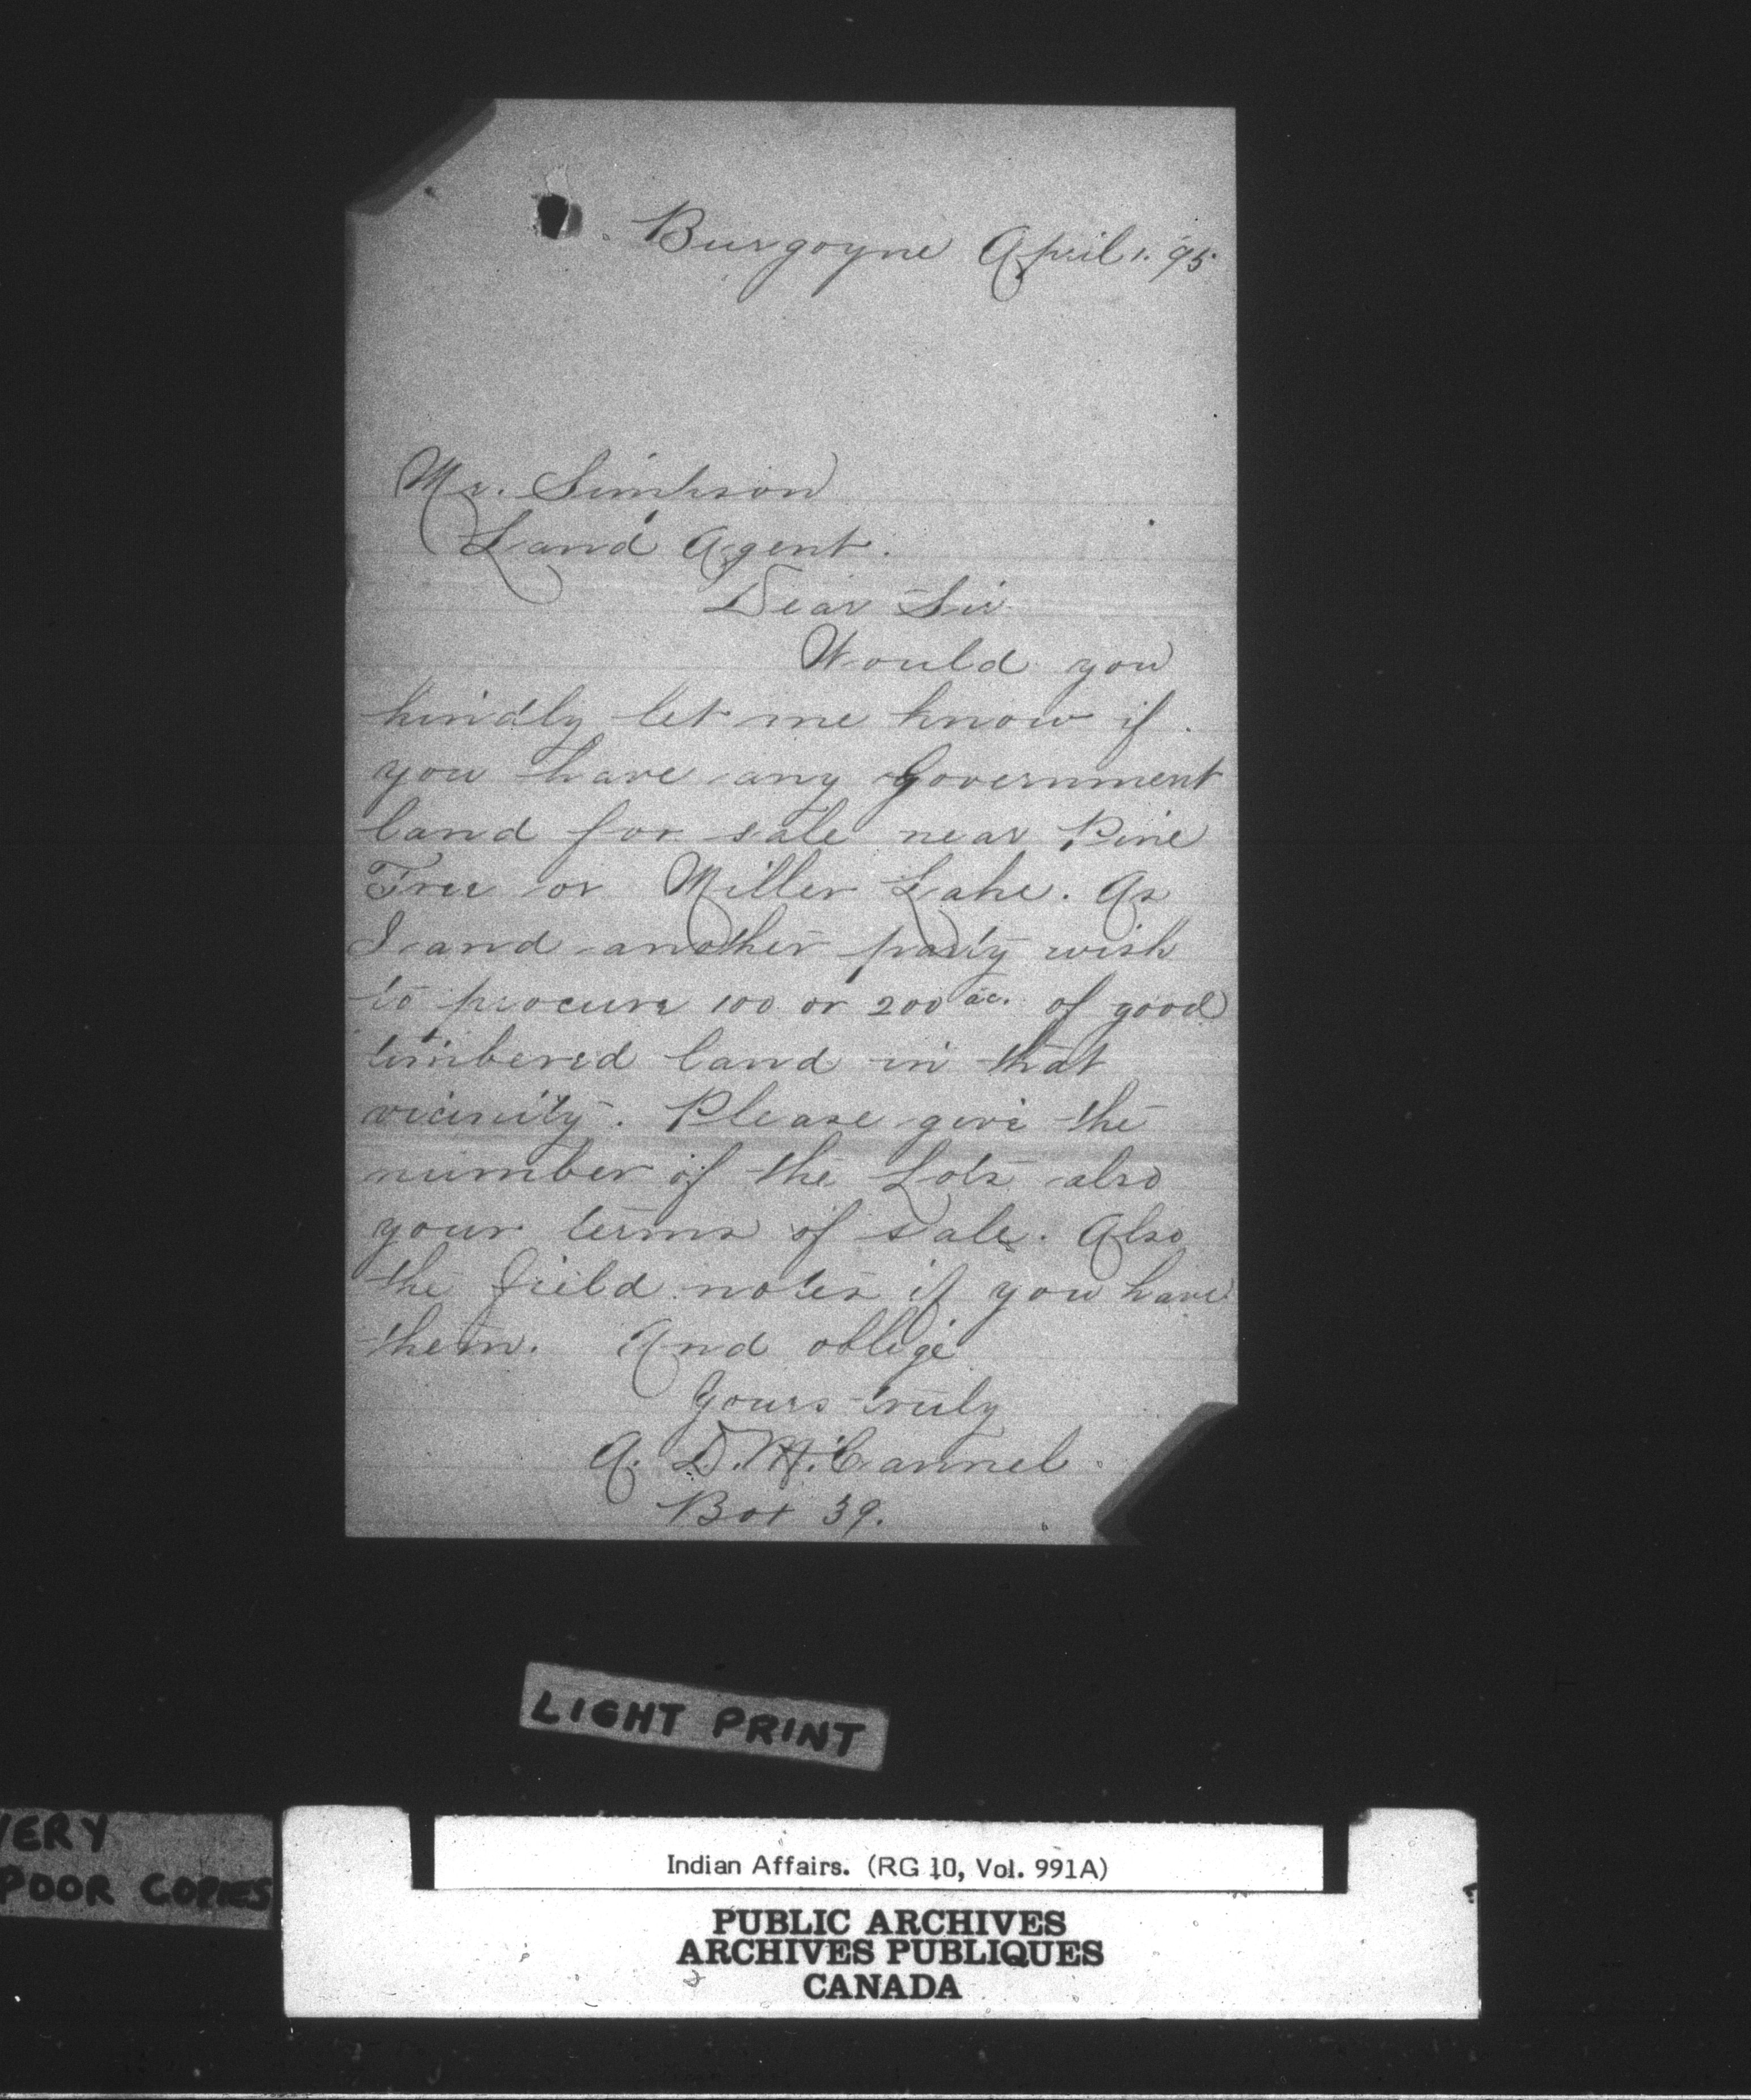 Burgoyne April 1. 95
Mr. Simpson
Land Agent.
Dear Sir
Would you
kindly let me know if
you have any Government
land for sale near Pine
Tree or Miller Lake. As
I and another party wish
to procure 100 or 200 ac. of good
timbered land in that
vicinity. Please give the
number of the Lots also
your terms of sale. Also
the field notes if you have
them. And oblige
Yours truly
A. D. McCannel.
Box 39.
LIGHT PRINT
VERY
POOR COPIES
Indian Affairs. (RG 10, Vol. 991A)
PUBLIC ARCHIVES
ARCHIVES PUBLIQUES
CANADA